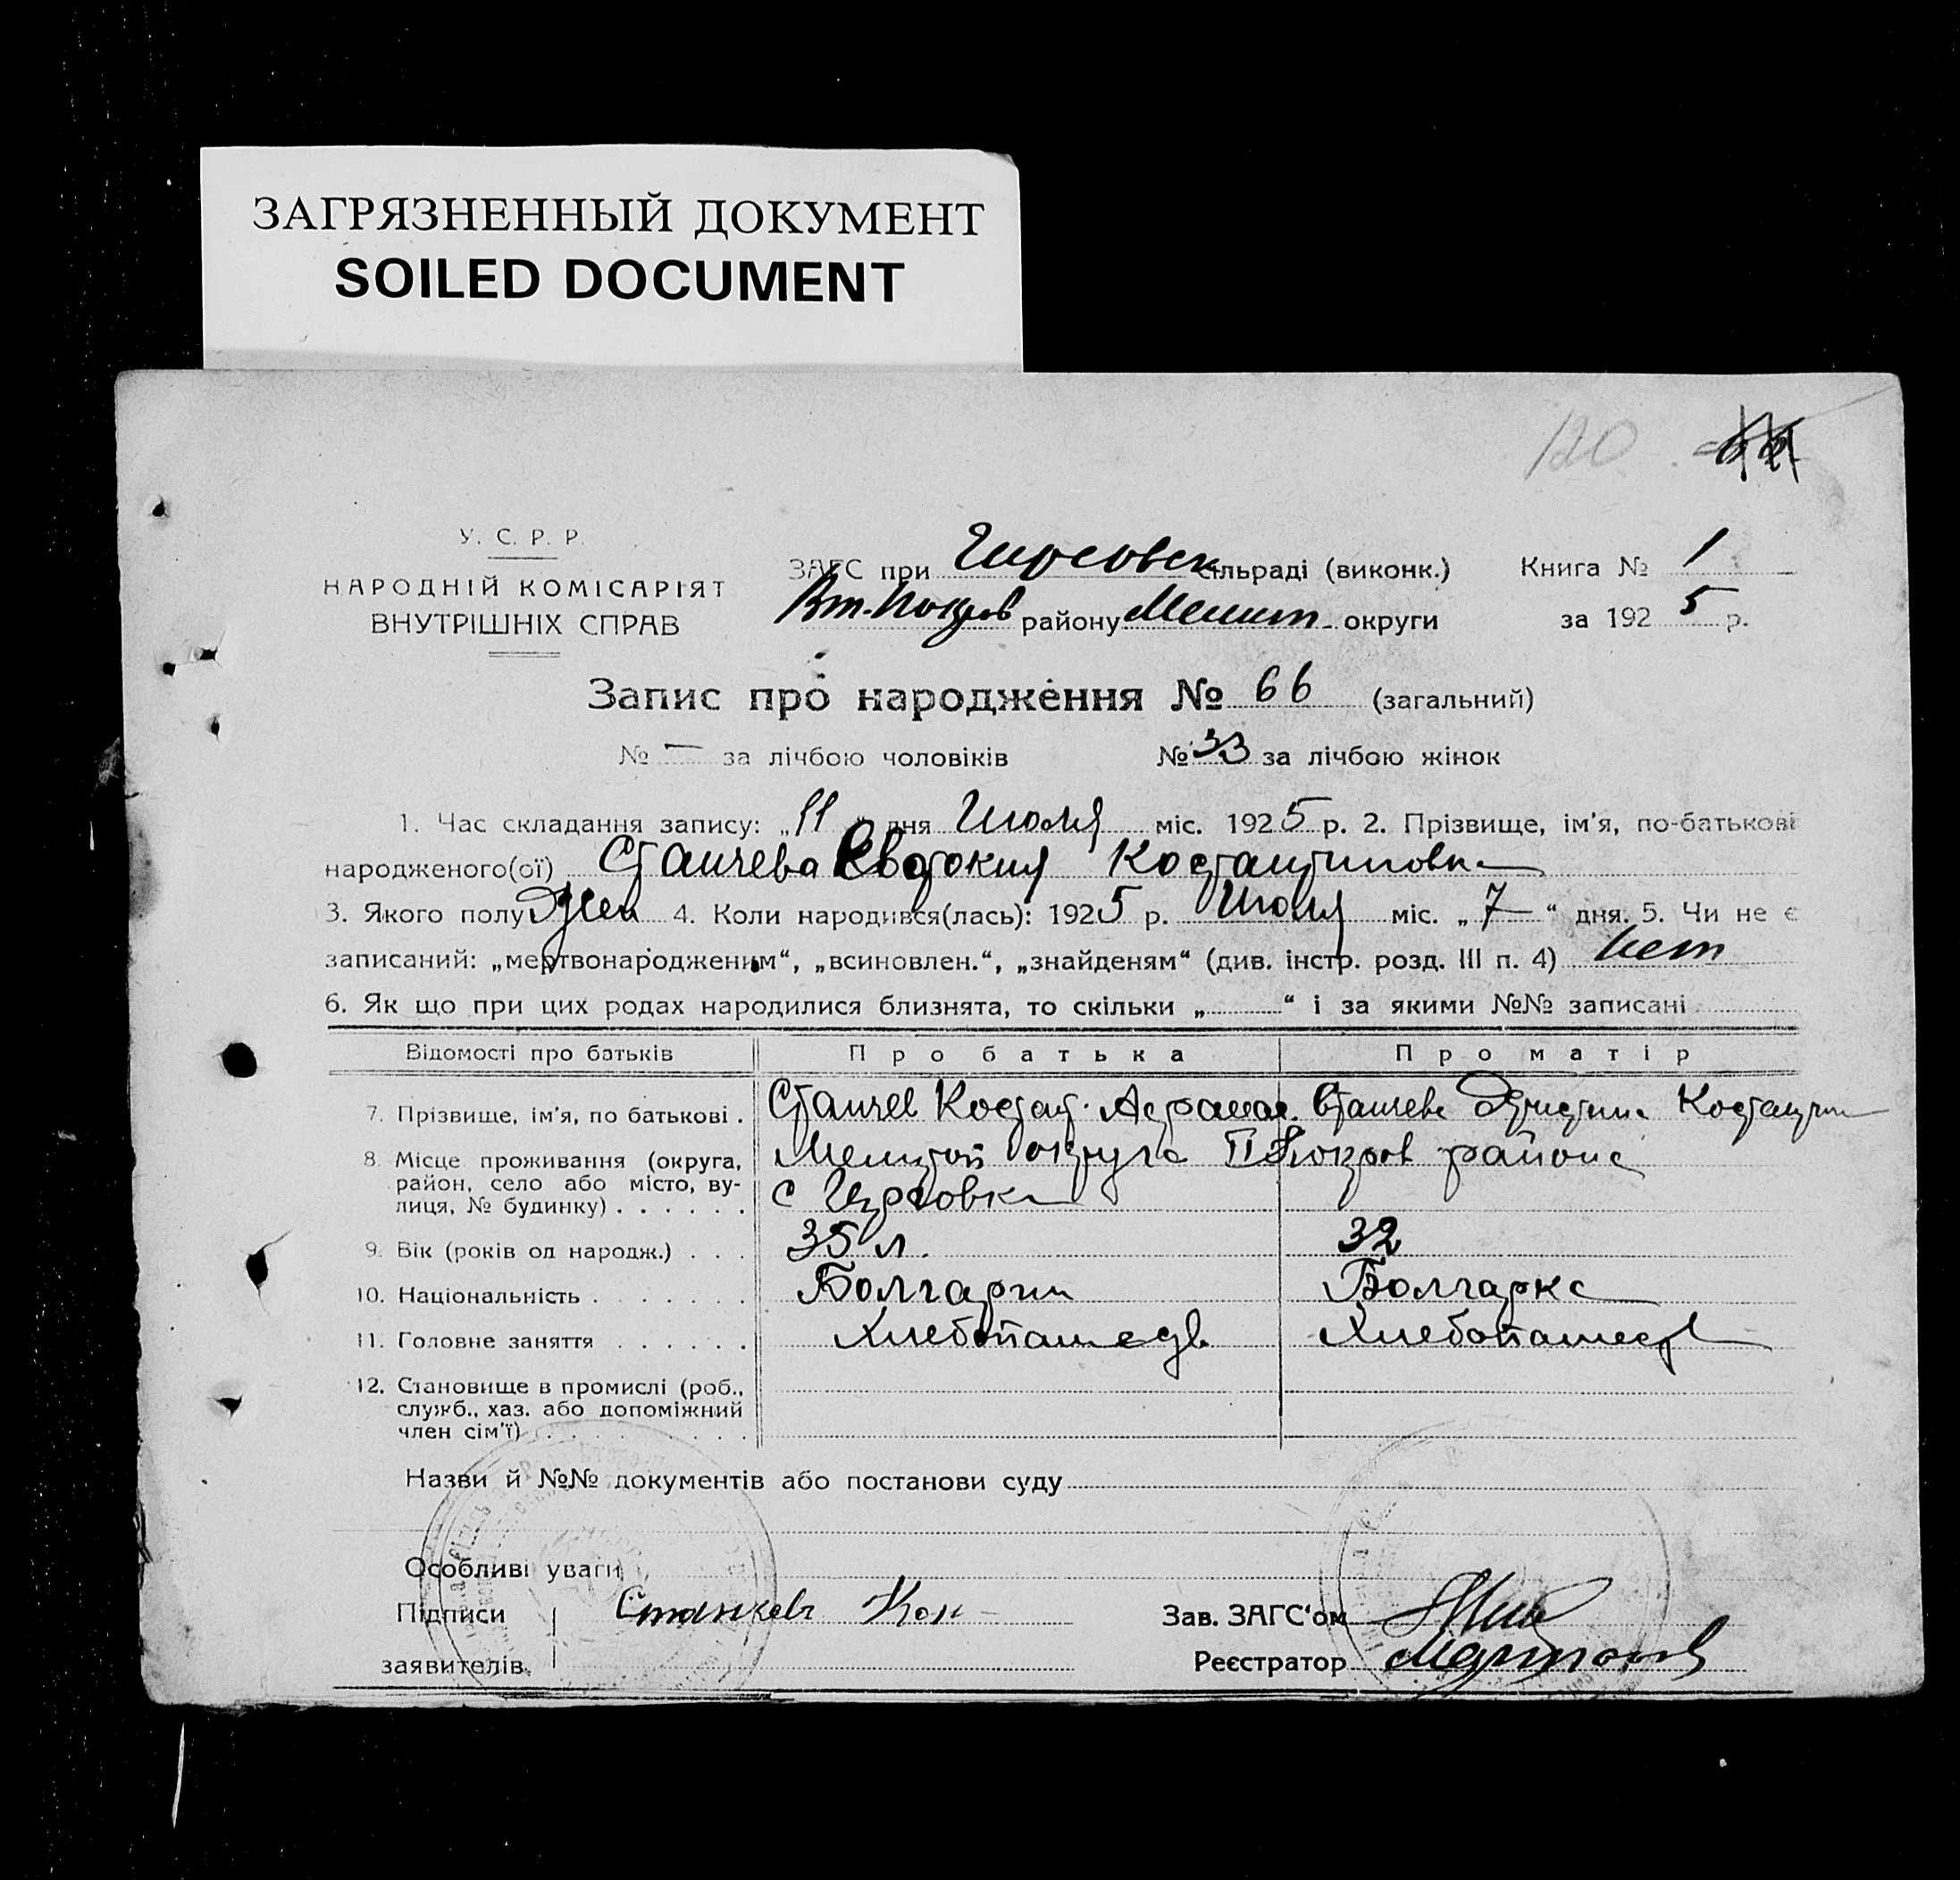 ЗАГРЯЗНЕННЫЙ ДОКУМЕНТ
SOILED DOCUMENT
120
У. С. Р. Р.
НАРОДНІЙ КОМІСАРІЯТ
ВНУТРІШНІХ СПРАВ
ЗАГС при сільраді (виконк.) Книга № 1
Вт. Покров району Мелит. округи за 1925 р.
Запис про народження № 66 (загальний)
№ — за лічбою чоловіків № 33 за лічбою жінок
1. Час складання запису: „11“ дня Июля міс. 1925 р. 2. Прізвище, ім'я, по-батькові
народженого(ої) Станчева Евдокия Костантиновна
3. Якого полу Жен 4. Коли народився(лась): 1925 р. Июля міс. „7“ дня. 5. Чи не є
записаний: „мертвонародженим“, „всиновлен.“, „знайденям“ (див. інстр. розд. III п. 4) нет
6. Як що при цих родах народилися близнята, то скільки „ “ і за якими №№ записані
Відомості про батьків Про батька Про матір
7. Прізвище, ім'я, по батькові . Станчев Костат. Станчева Костантин
8. Місце проживання (округа, Мелитоп округа II Покров района
район, село або місто, ву-
лиця, № будинку) . . . . . . с
9. Вік (років од народж.) . . . 35 л. 32
10. Національність . . . . . . . Болгарин Болгарка
11. Головне заняття . . . . . . Хлебопашедв Хлебопашед
12. Становище в промислі (роб.,
служб., хаз. або допоміжний
член сім'ї) . . . . . . . . .
Назви й №№ документів або постанови суду
Особливі уваги
Підписи Кон Зав. ЗАГС'ом
заявителів. Реєстратор